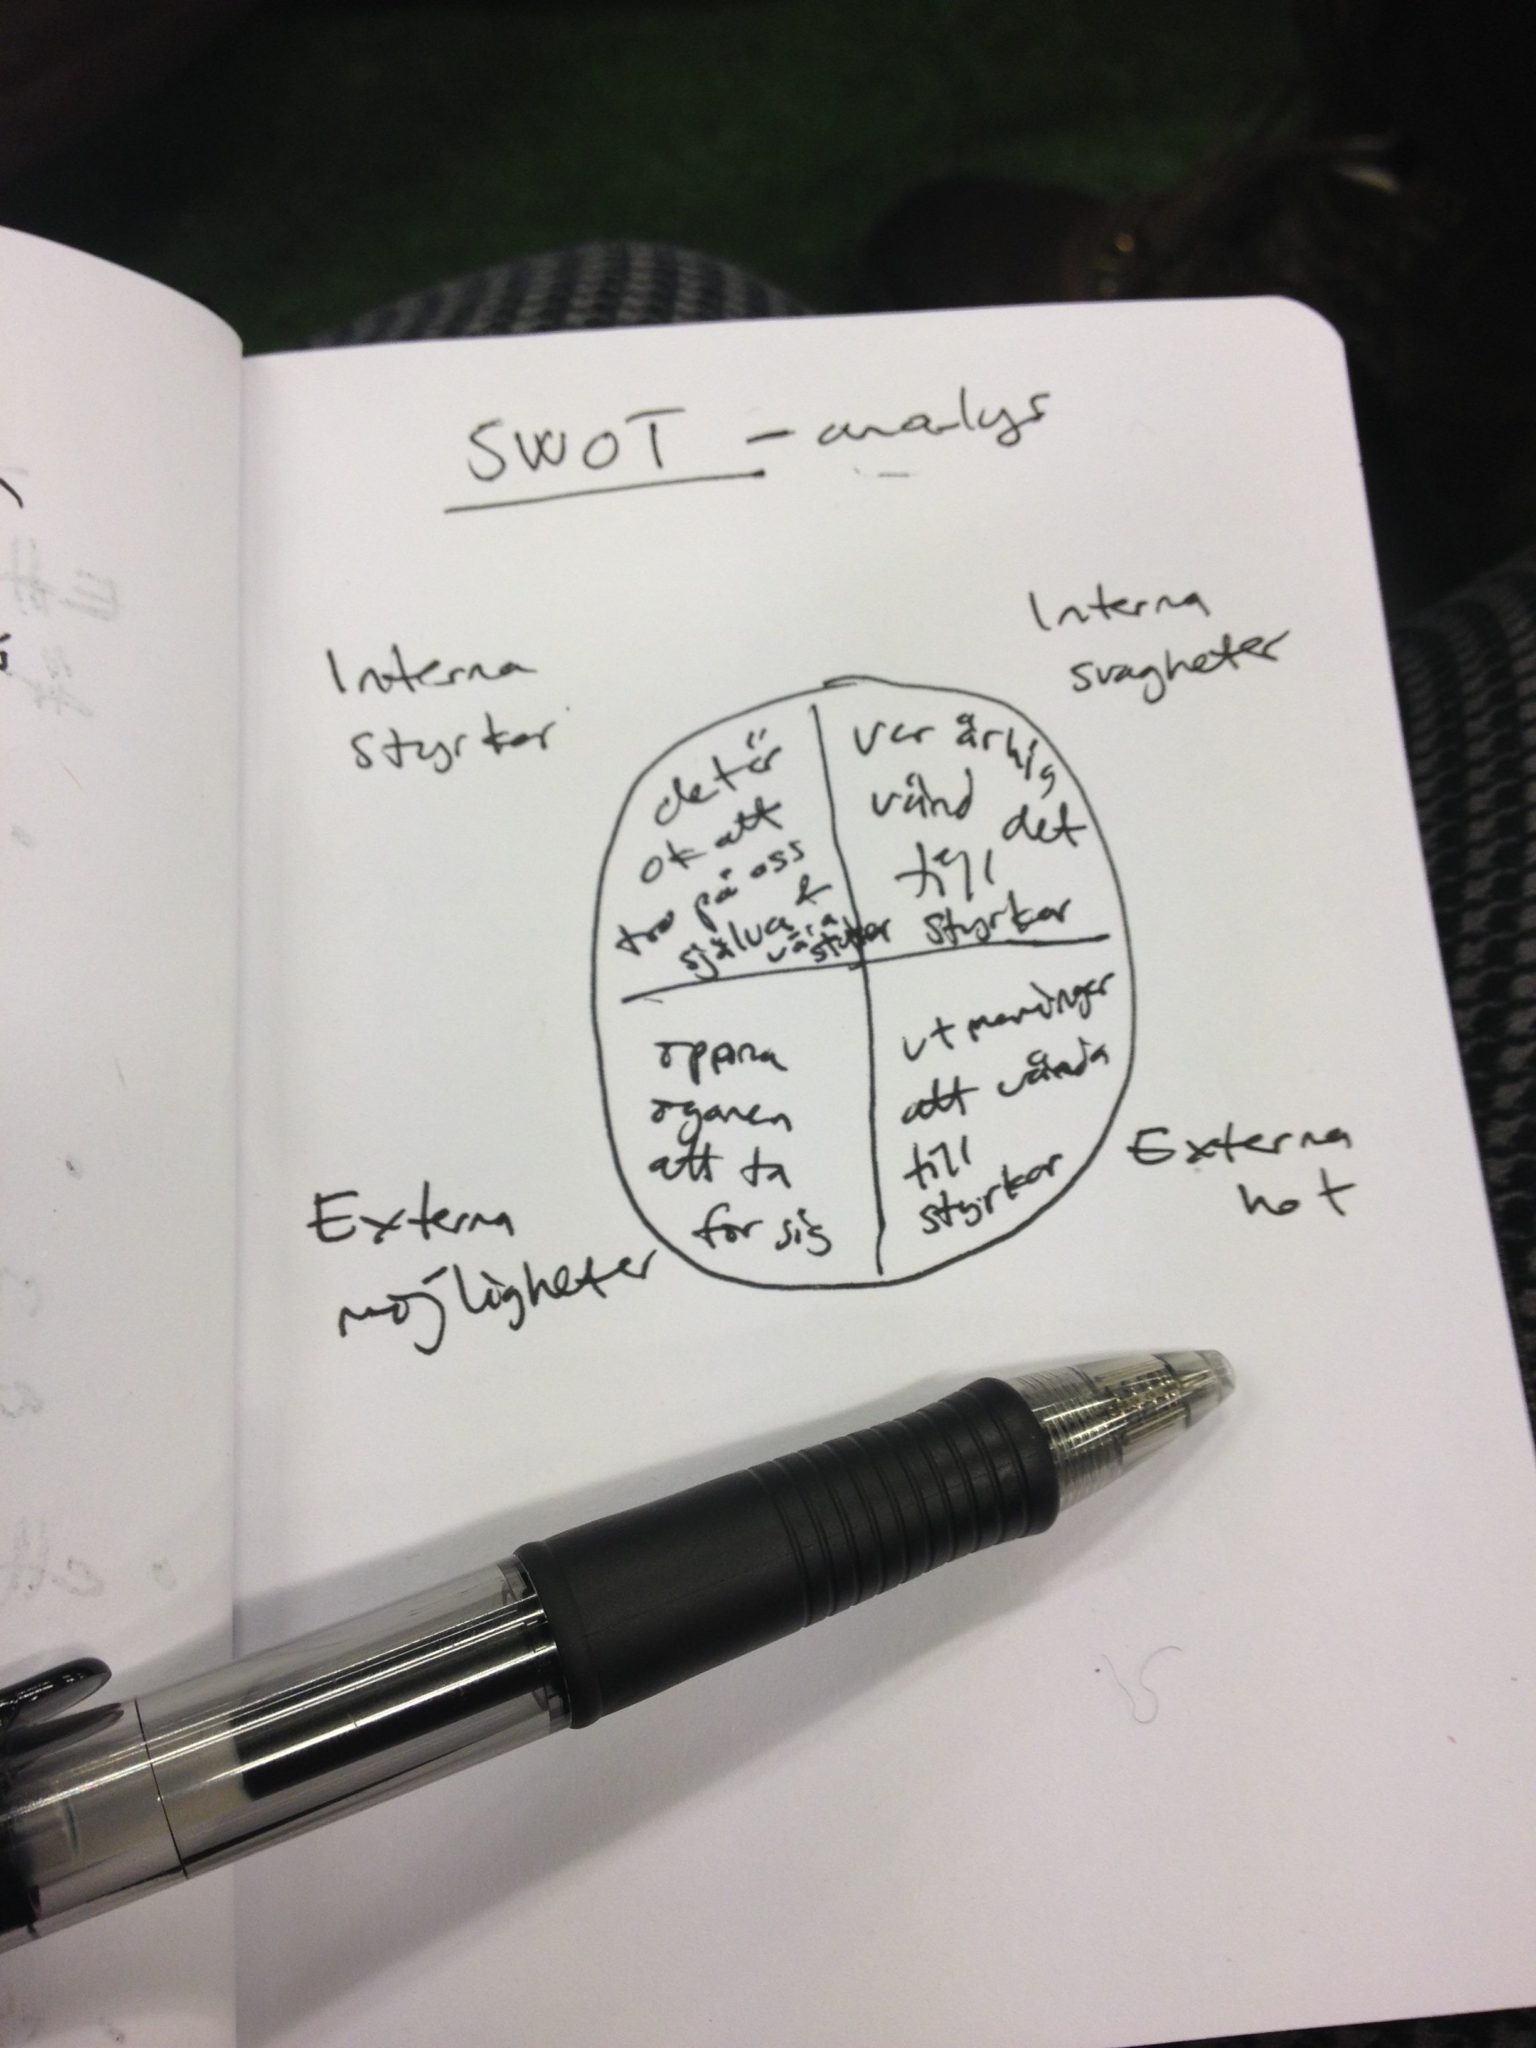 SWOT - analys
Interna
styrkor
Interna
svagheter
det är
ok att
tro på oss
själva &
våra
styrkor
var ärlig
vänd det
till
styrkor
öppna
ögonen
att ta
för sig
utmaningar
att vända
till
styrkor
Externa
möjligheter
Externa
hot